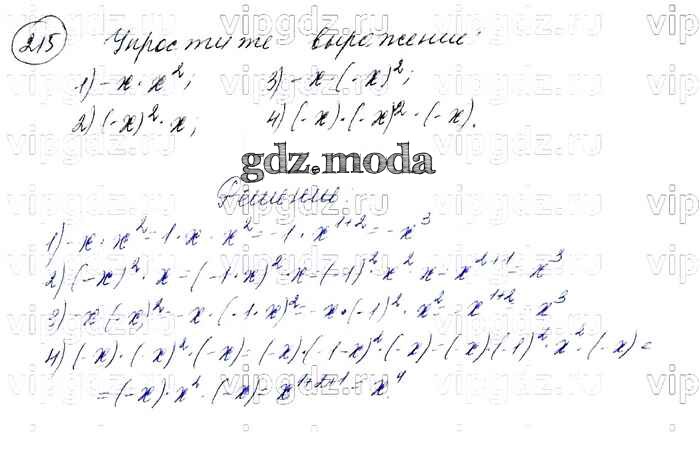 215 Упростите выражение:
1) -x · x²; 3) -x · (-x)²;
2) (-x)² · x; 4) (-x) · (-x)² · (-x).
gdz.moda
Решение:
1) -x · x² = -1 · x · x² = -1 · x¹⁺² = -x³
2) (-x)² · x = (-1 · x)² · x = (-1)² · x² · x = x²⁺¹ = x³
3) -x · (-x)² = -x · (-1 · x)² = -x · (-1)² · x² = -x¹⁺² = -x³
4) (-x) · (-x)² · (-x) = (-x) · (-1 · x)² · (-x) = (-x) · (-1)² · x² · (-x) =
= (-x) · x² · (-x) = x¹⁺²⁺¹ = x⁴
vipgdz.ru